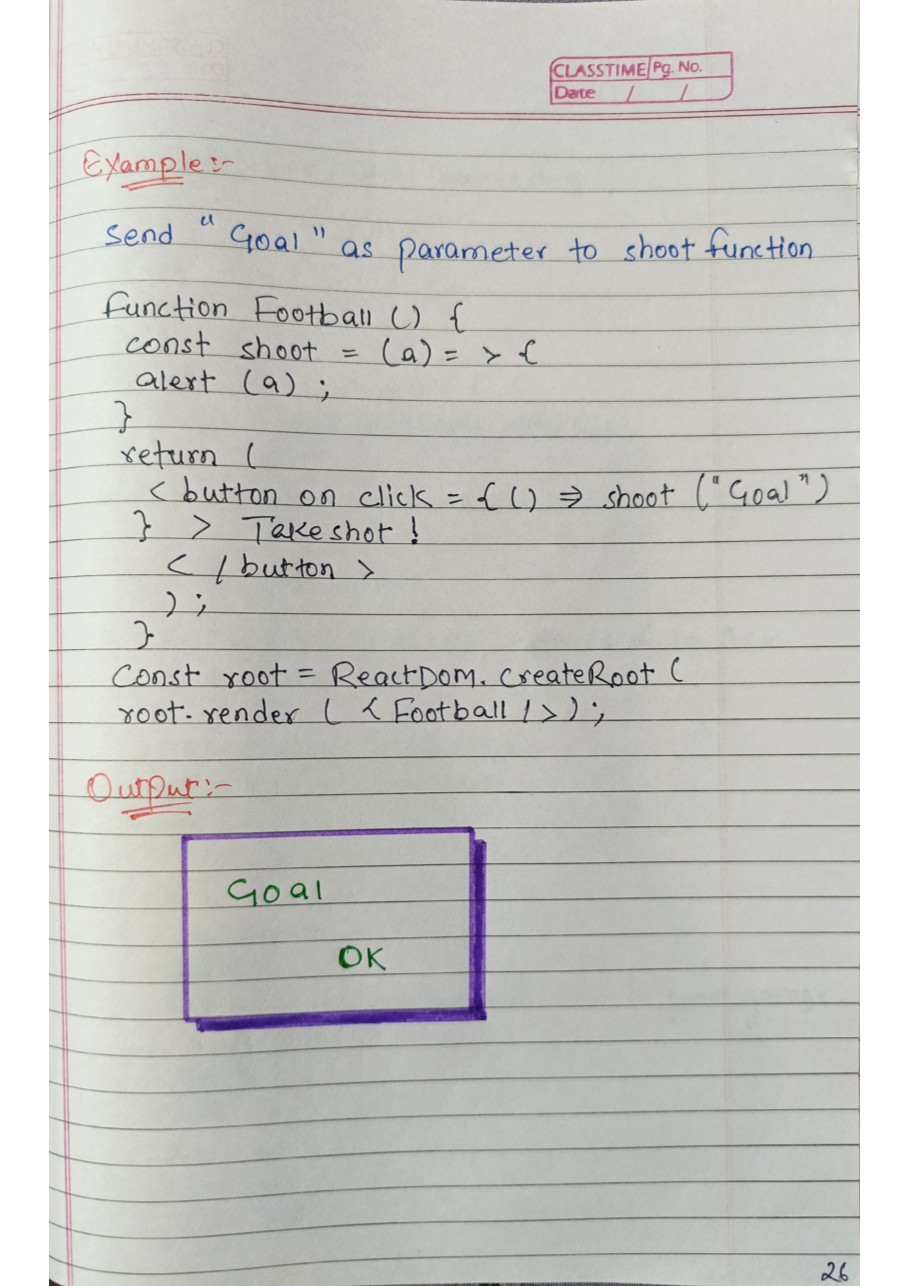 CLASSTIME Pg. No.
Date / /
Example :-
Send " Goal " as parameter to shoot function
function Football () {
const shoot = (a) = > {
alert (a) ;
}
return (
< button on click = { () ⇒ shoot ("Goal")
} > Take shot !
< / button >
) ;
}
Const root = ReactDom. CreateRoot (
root. render ( < Football / > ) ;
Output :-
Goal
OK
26